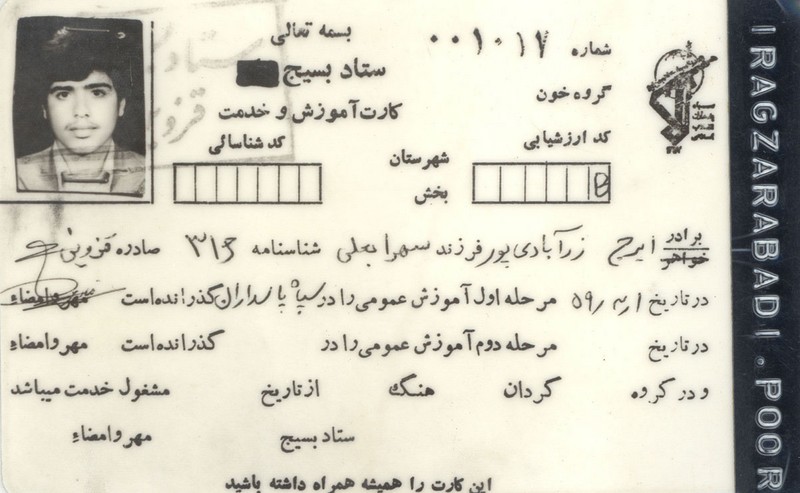 بسمه تعالی
شماره ۰۰۱۰۱۷
ستاد بسیج
گروه خون
کارت آموزش و خدمت
کد ارزشیابی
کد شناسائی
شهرستان
بخش
B
برادر
خواهر
ایرج زرآبادی پور فرزند سهرابعلی شناسنامه ۳۱۶ صادره قزوین
در تاریخ مرحله اول آموزش عمومی را در سپاه پاسداران گذرانده است مهر وامضاء
در تاریخ مرحله دوم آموزش عمومی را در گذرانده است مهر وامضاء
و در گروه گردان هنگ از تاریخ مشغول خدمت میباشد
ستاد بسیج مهر وامضاء
این کارت را همیشه همراه داشته باشید
IRAGZARABADI.POOR